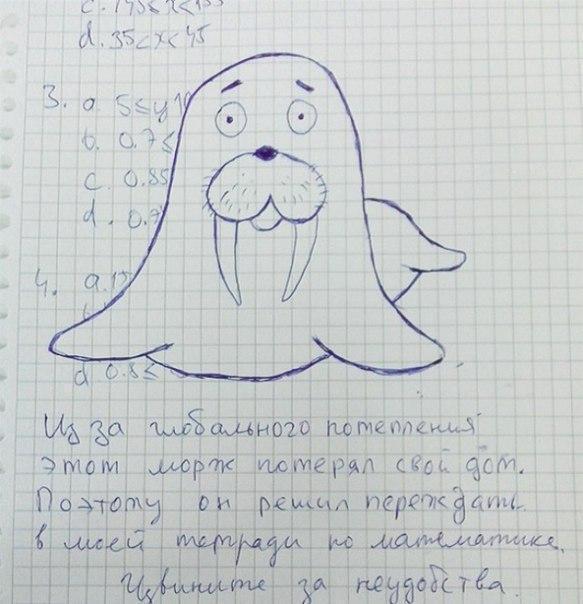 c. 145≤x≤155
d. 35<x<45
3. a. 5≤y
b. 0.7≤
c. 0.85
d. 0.7
4. a. 15
d 0.8≤
Из за глобального потепления
этот морж потерял свой дом.
Поэтому он решил переждать
в моей тетради по математике.
Извините за неудобства.